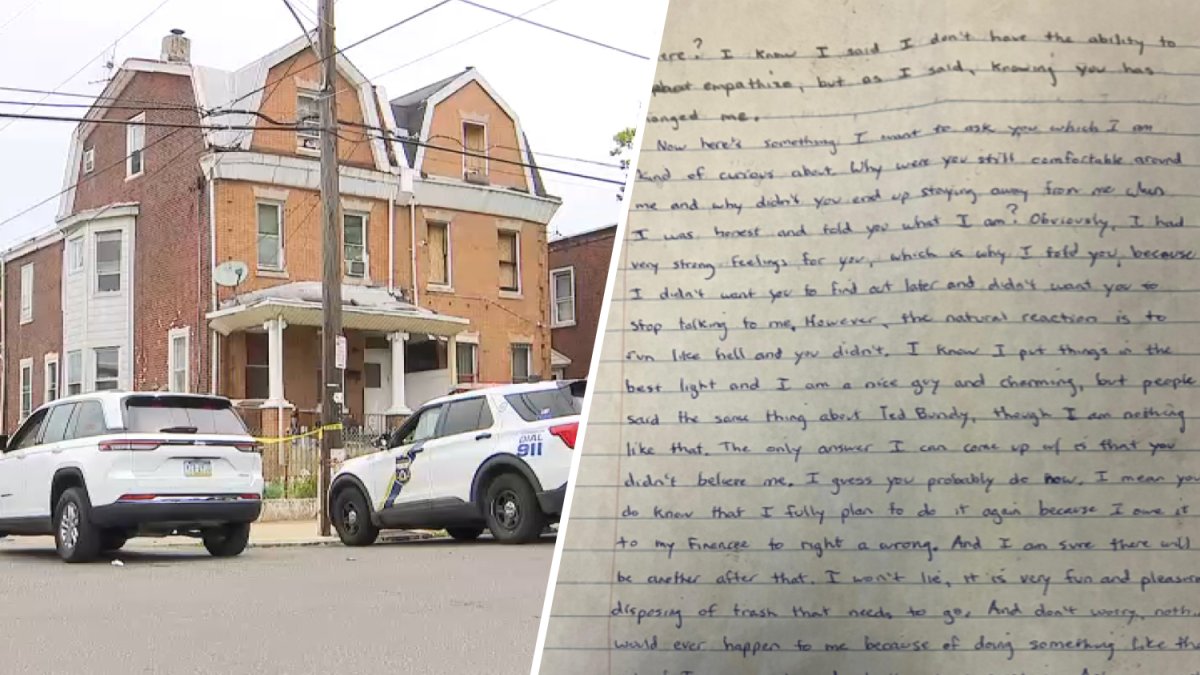 DIAL
911
ere? I know I said I don't have the ability to
about empathize, but as I said, knowing you has
hanged me.
Now here's something I want to ask you which I am
kind of curious about. Why were you still comfortable around
me and why didn't you end up staying away from me when
I was honest and told you what I am? Obviously, I had
very strong feelings for you, which is why I told you, because
I didn't want you to find out later and didn't want you to
stop talking to me. However, the natural reaction is to
run like hell and you didn't. I know I put things in the
best light and I am a nice guy and charming, but people
said the same thing about Ted Bundy, though I am nothing
like that. The only answer I can come up w/ is that you
didn't believe me. I guess you probably do now. I mean you
do know that I fully plan to do it again because I owe it
to my Financee to right a wrong. And I am sure there will
be another after that. I won't lie, it is very fun and pleasure
disposing of trash that needs to go. And don't worry, noth
would ever happen to me because of doing something like tha